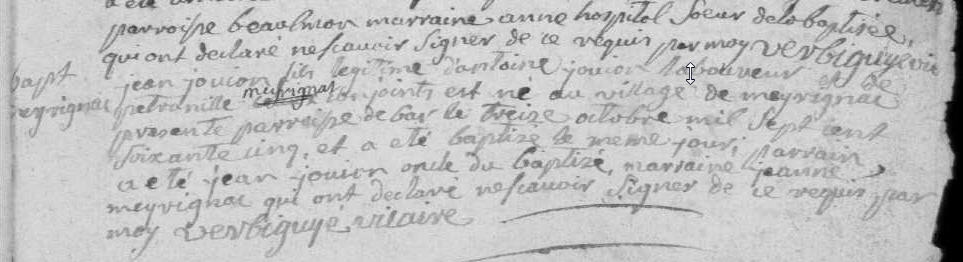 parroisse beaulmon marraine anne hospitol soeur de la baptisée,
qui ont declaré nescavoir signer de ce requis par moy Verbiguye vic
bapt
meyrignac
jean jouion fils legitime d'antoine jouion laboureur et de
petronille meyrignac conjoints est né au village de meyrignac
presente parroisse de bar le treize octobre mil sept cent
soixante cinq, et a eté baptizé le meme jour, parrain
a eté jean jouion oncle du baptizé, marraine jeanne
meyrignac qui ont declaré nescavoir signer de ce requis par
moy Verbiguye vicaire